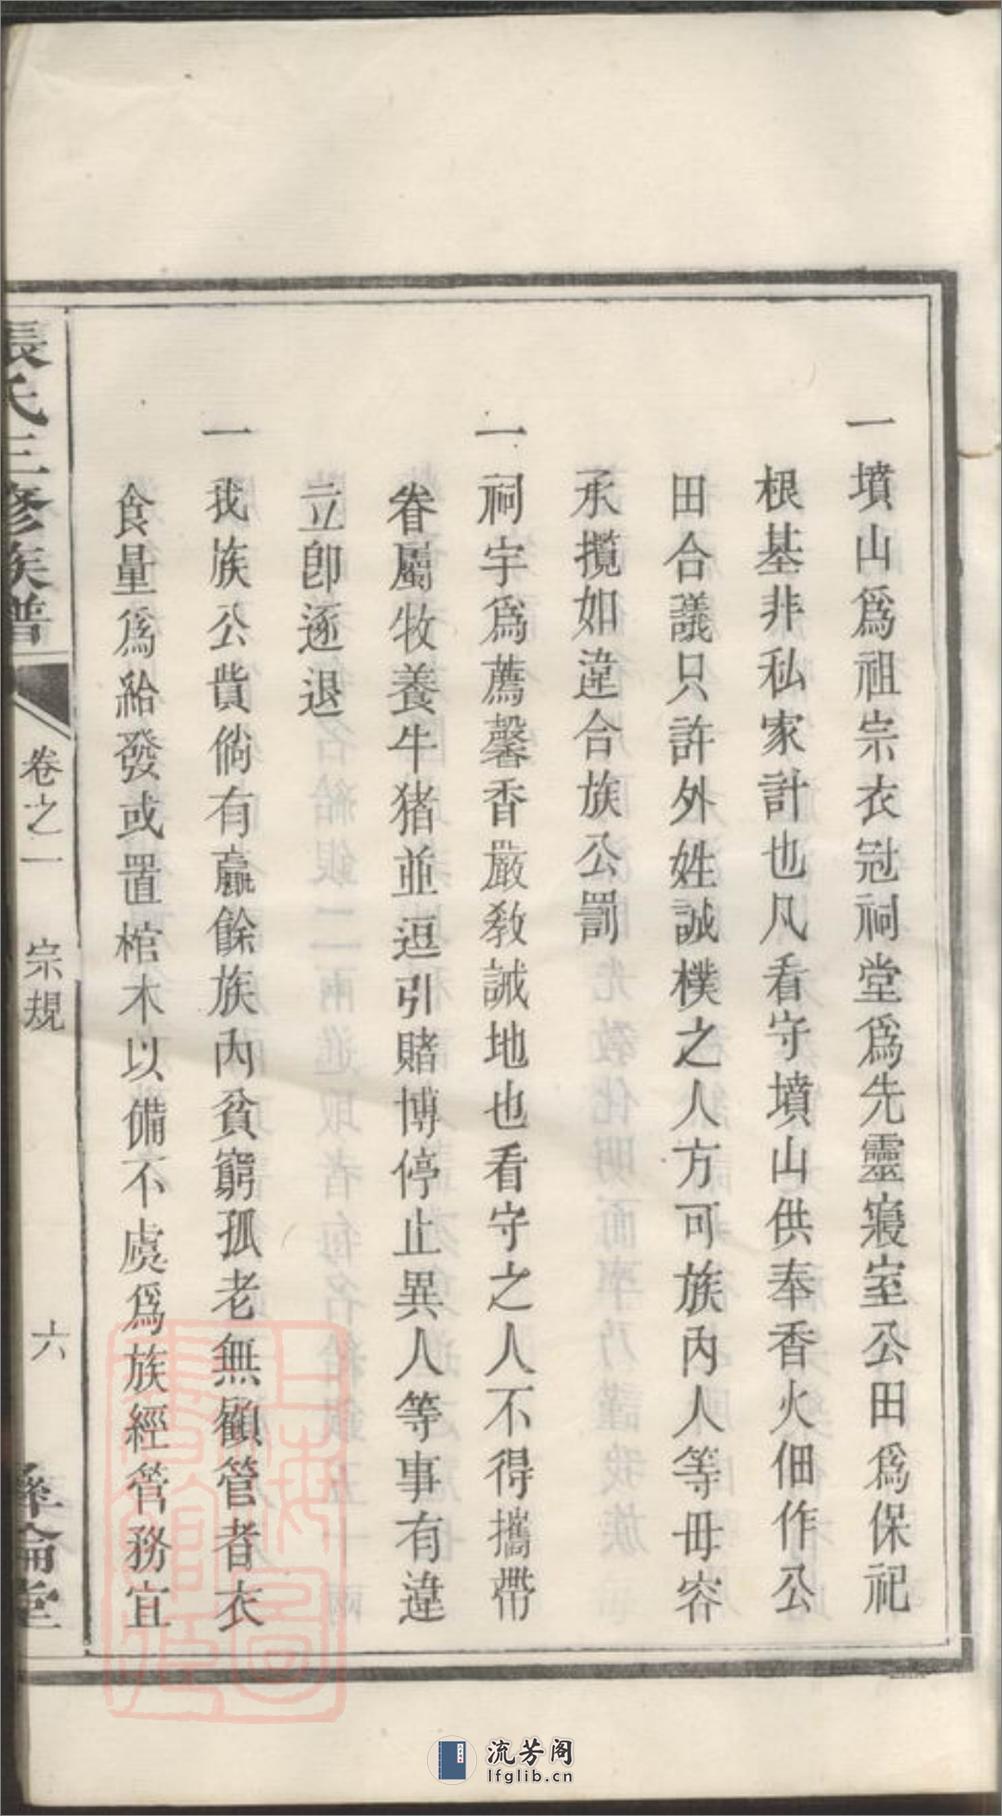 一墳山爲祖宗衣冠祠堂爲先靈寢室公田爲保祀
根基非私家計也凡看守墳山供奉香火佃作公
田合議只許外姓誠樸之人方可族內人等毋容
承攬如違合族公罰
一祠宇爲薦馨香嚴教誡地也看守之人不得攜帶
眷屬牧養牛猪並逗引賭博停止異人等事有違
立卽逐退
一我族公費倘有贏餘族內貧窮孤老無顧管者衣
食量爲給發或置棺木以備不虞爲族經管務宜
張氏三修族譜 卷之一 宗規 六 彝倫堂
上海圖書館藏
流芳阁
lfglib.cn